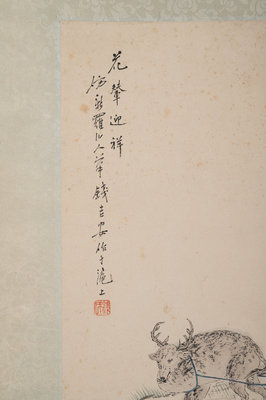 花輦迎祥
仿新羅山人筆 錢吉安作于滬上